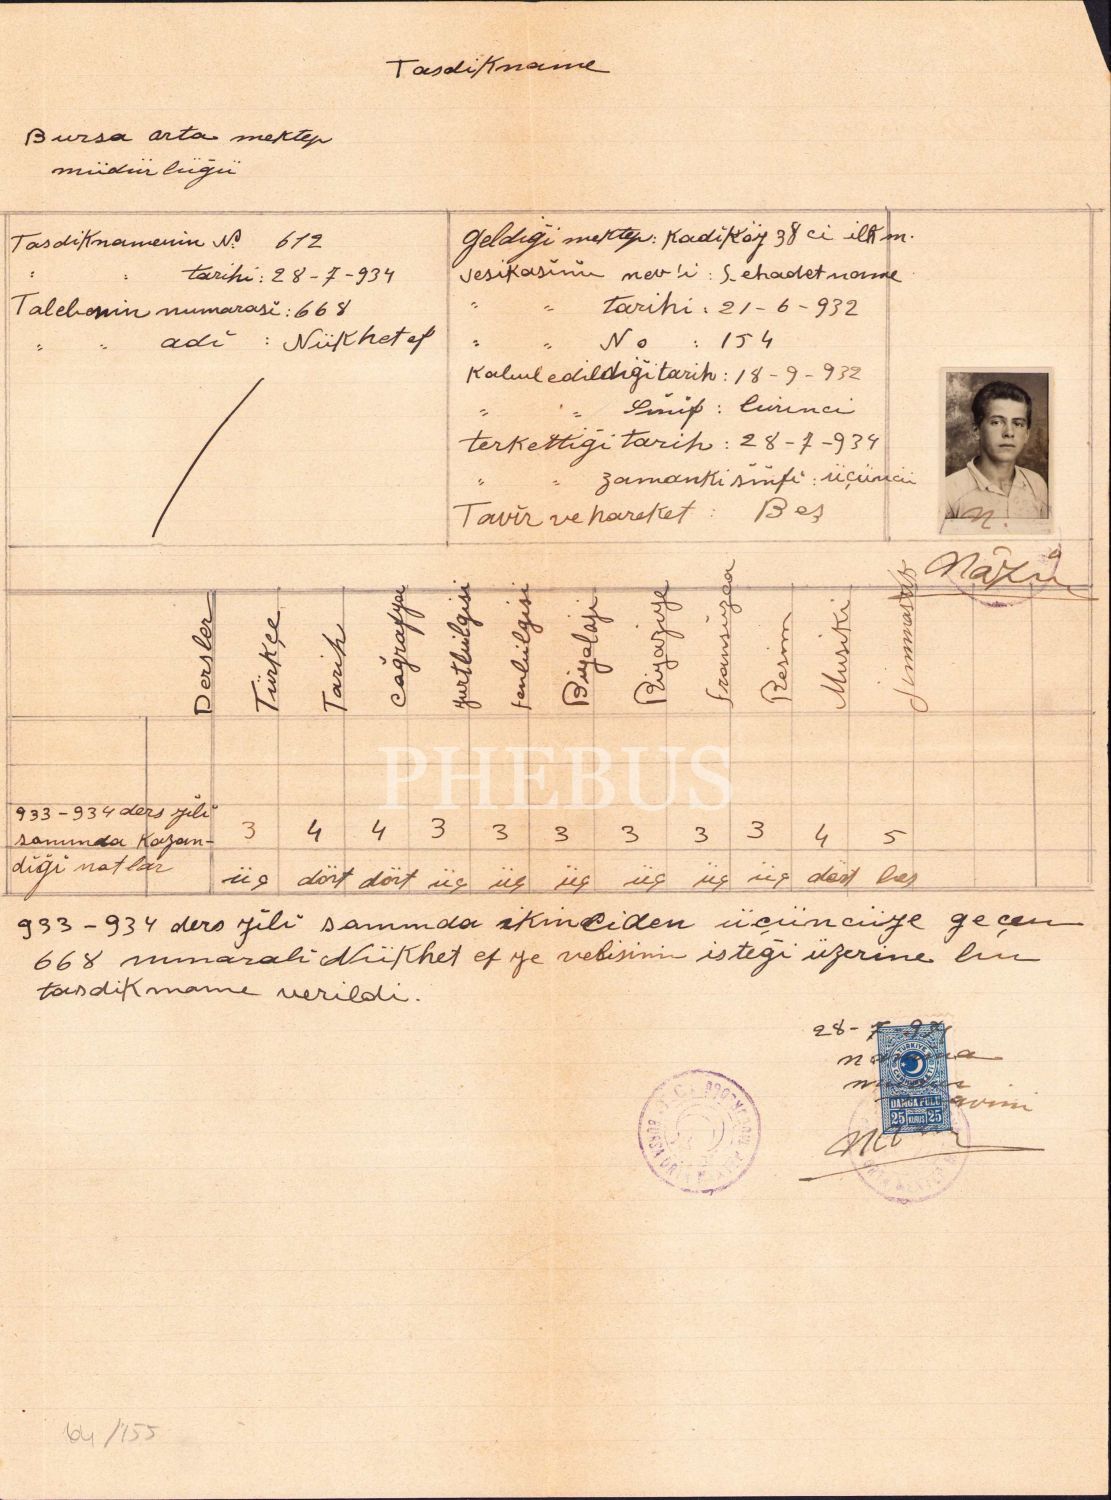 Tasdikname
Bursa orta mektep
müdürlüğü
Tasdiknamenin No 612
" " tarihi: 28-7-934
Talebenin numarasi: 668
" " adi : Nükhet ef
Geldiği mektep: Kadiköy 38 ci ilk m.
vesikasinin nev'i : Şehadetname
" " tarihi : 21-6-932
" " No : 154
Kabul edildiği tarih : 18-9-932
" " Sinif : birinci
terkettiği tarih : 28-7-934
" " zamanki sinifi : üçüncü
Tavir ve hareket : Beş
Dersler Türkçe Tarih Coğrafya yurtbilgisi fenbilgisi Biyoloji Riyaziye fransizca Resim Musiki Jimnastik
PHEBUS
933-934 ders yili
sonunda Kazan-
diği notlar
3 4 4 3 3 3 3 3 3 4 5
üç dört dört üç üç üç üç üç üç dört beş
933-934 ders yili sonunda ikinciden üçüncüye geçen
668 numarali Nükhet ef ye velisinin isteği üzerine bu
tasdikname verildi.
28-7-934
TÜRKİYE
DAMGA PULU
25 KURUŞ 25
64/155